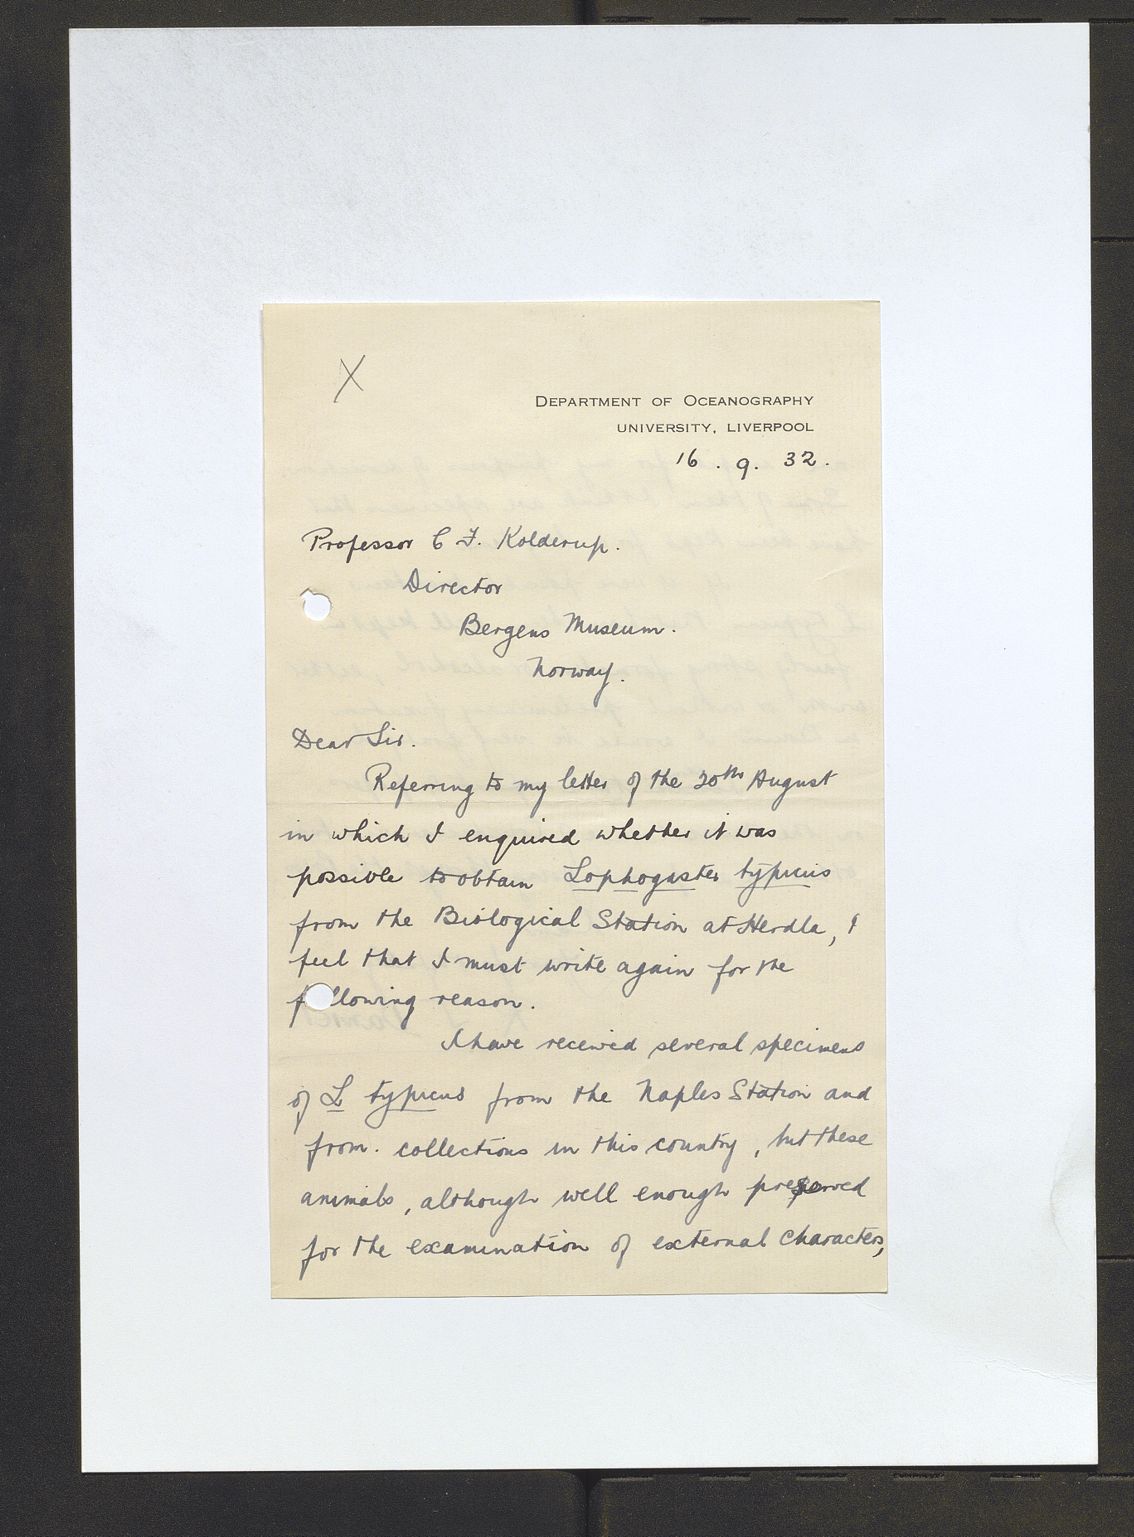 X
DEPARTMENT OF OCEANOGRAPHY
UNIVERSITY, LIVERPOOL
16. 9. 32.
Professor C F. Kolderup.
Director
Bergens Museum.
Norway.
Dear Sir.
Referring to my letter of the 20th August
in which I enquired whether it was
possible to obtain Lophogaster typicus
from the Biological Station at Herdla, I
feel that I must write again for the
following reason.
I have received several specimens
of L typicus from the Naples Station and
from. collections in this country, but these
animals, although well enough preserved
for the examination of external characters,